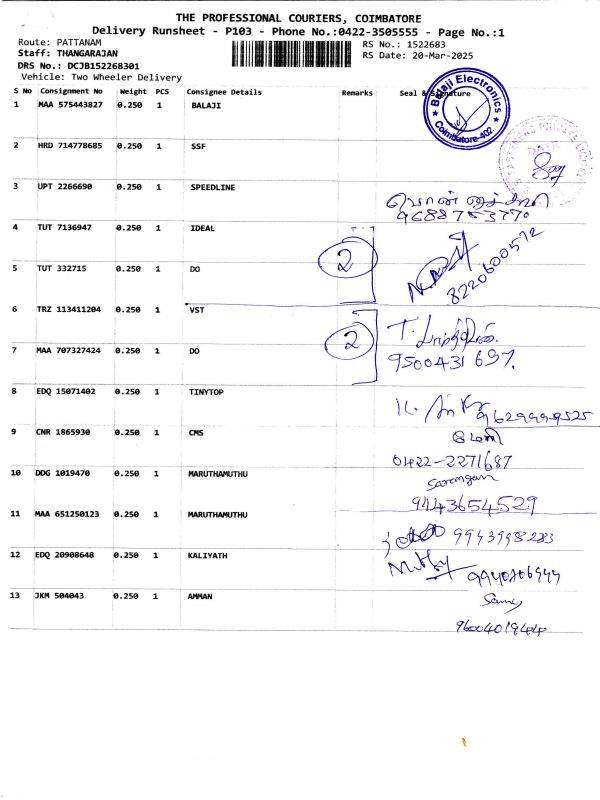 THE PROFESSIONAL COURIERS, COIMBATORE
Delivery Runsheet - P103 - Phone No.:0422-3505555 - Page No.:1
Route: PATTANAM RS No.: 1522683
Staff: THANGARAJAN RS Date: 20-Mar-2025
DRS No.: DCJB152268301
Vehicle: Two Wheeler Delivery
S No Consignment No Weight PCS Consignee Details Remarks Seal & Signature
1 MAA 575443827 0.250 1 BALAJI
Balaji Electronics
Coimbatore-402
2 HRD 714778685 0.250 1 SSF
3 UPT 2266690 0.250 1 SPEEDLINE
9688753770
4 TUT 7136947 0.250 1 IDEAL
2
8220600572
5 TUT 332715 0.250 1 DO
6 TRZ 113411204 0.250 1 VST
2
7 MAA 707327424 0.250 1 DO
8 EDQ 15071402 0.250 1 TINYTOP
9629999525
9 CNR 1865930 0.250 1 CMS
0422-2271687
10 DDG 1019470 0.250 1 MARUTHAMUTHU
Sarangan
9443654529
11 MAA 651250123 0.250 1 MARUTHAMUTHU
12 EDQ 20908648 0.250 1 KALIYATH
13 JKM 504043 0.250 1 AMMAN